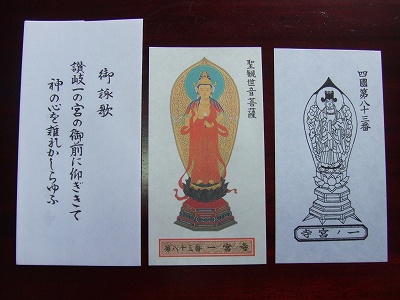 御詠歌
讃岐一の宮の御前に仰ぎきて
神の心を誰れかしらゆふ
聖観世音菩薩
第八十三番 一宮寺
四國第八十三番
一ノ宮寺